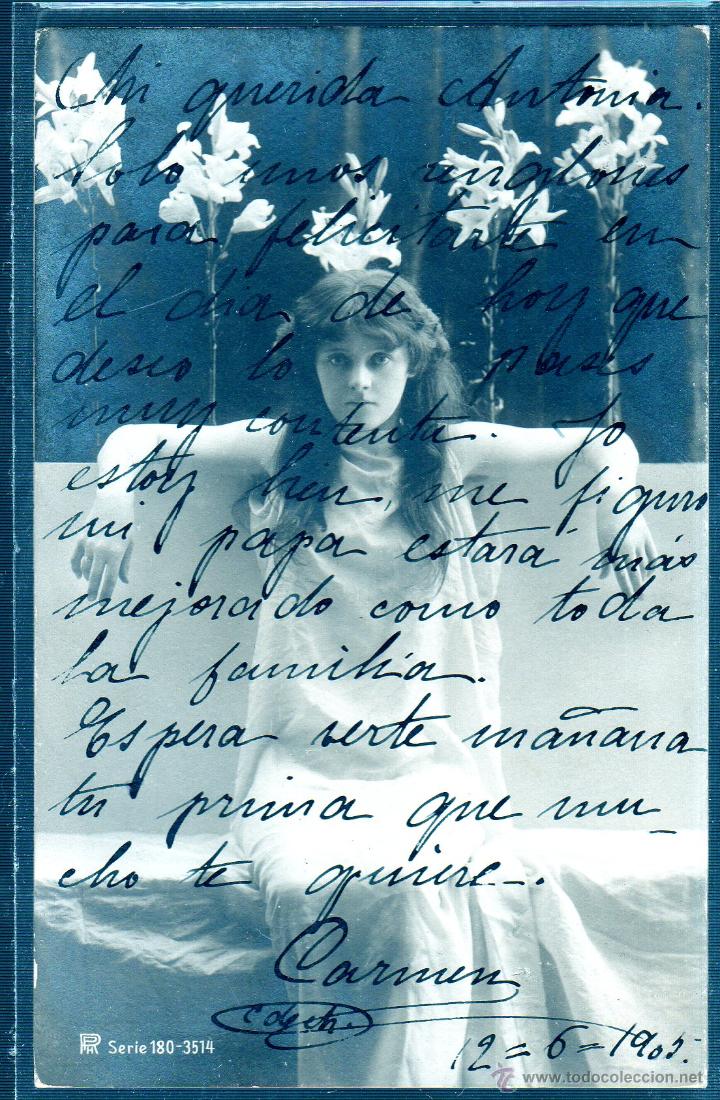 Mi querida Antonia.
Solo unos renglones
para felicitarte en
el dia de hoy que
deseo lo pases
muy contenta. Yo
estoy bien, me figuro
mi papa estará más
mejorado como toda
la familia.
Espera verte mañana
tu prima que mu_
cho te quiere_.
Carmen
12=6=1905.
Serie 180-3514
www.todocoleccion.net